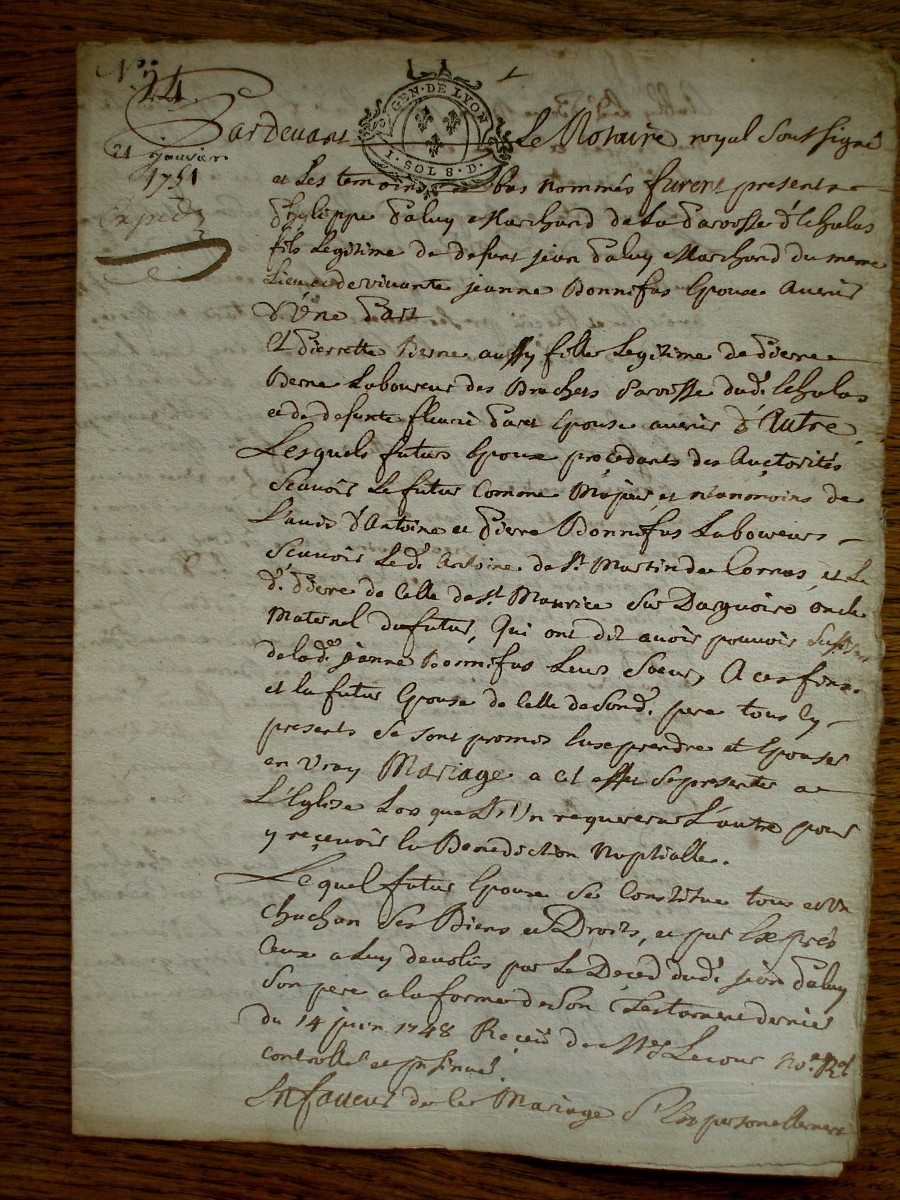 N.° 24
GEN · DE LYON
1 · SOL 8 · D ·
21 janvier
1751
Expédié
Pardevant Le Notaire royal soussigné
et Les temoins bas nommés furent presents
Philippe Paluy Marchand de La Paroisse d'Echalas
fils Legitime de defunt jean Paluy Marchand du meme
Lieu et de vivante jeanne Bonnifas Epoux avenir
D'Vne Part
Et Pierrette Berne aussy fille Legitime de Pierre
Berne Laboureur des Brochets Paroisse dud. Echalas
et de defunte fleurie Paret Epouse avenir D'Autre
Lesquels futurs Epoux procedants des Auctorités
Scavoir Le futur Comme Majeur et néanmoins de
L'avis D'Antoine et Pierre Bonnifas Laboureurs
Scavoir Led. Antoine de St Martin de Cornas, et Le
d. Pierre de Celle de St Maurice Sur Dargoire oncle
Maternel du futur, Qui ont dit avoir pouvoir
de lad. jeanne Bonnifas Leur Soeur, A ces fins
et la future Epouse de Celle de Sond. pere tous Cy
presents Se Sont promis Luse prendre et Epouser
en Vray Mariage a Cet effet Se presenter a
L'Eglise Lors que L'Un requerera L'autre pour
y reçevoir la Benediction Nuptialle.
Lequel futur Epoux Se Constitue tous et Vn
chachan Ses Biens et Droits, et par Exprés
Ceux a Luy devolus par Le Deced dud. jean Paluy
Son pere a la forme de Son Testament dernier
du 14 juin 1748 Reçeu de Me Lecour No.re R.al
Controllé et jnsinué.
En faveur de Ce Mariage S'Est personellement